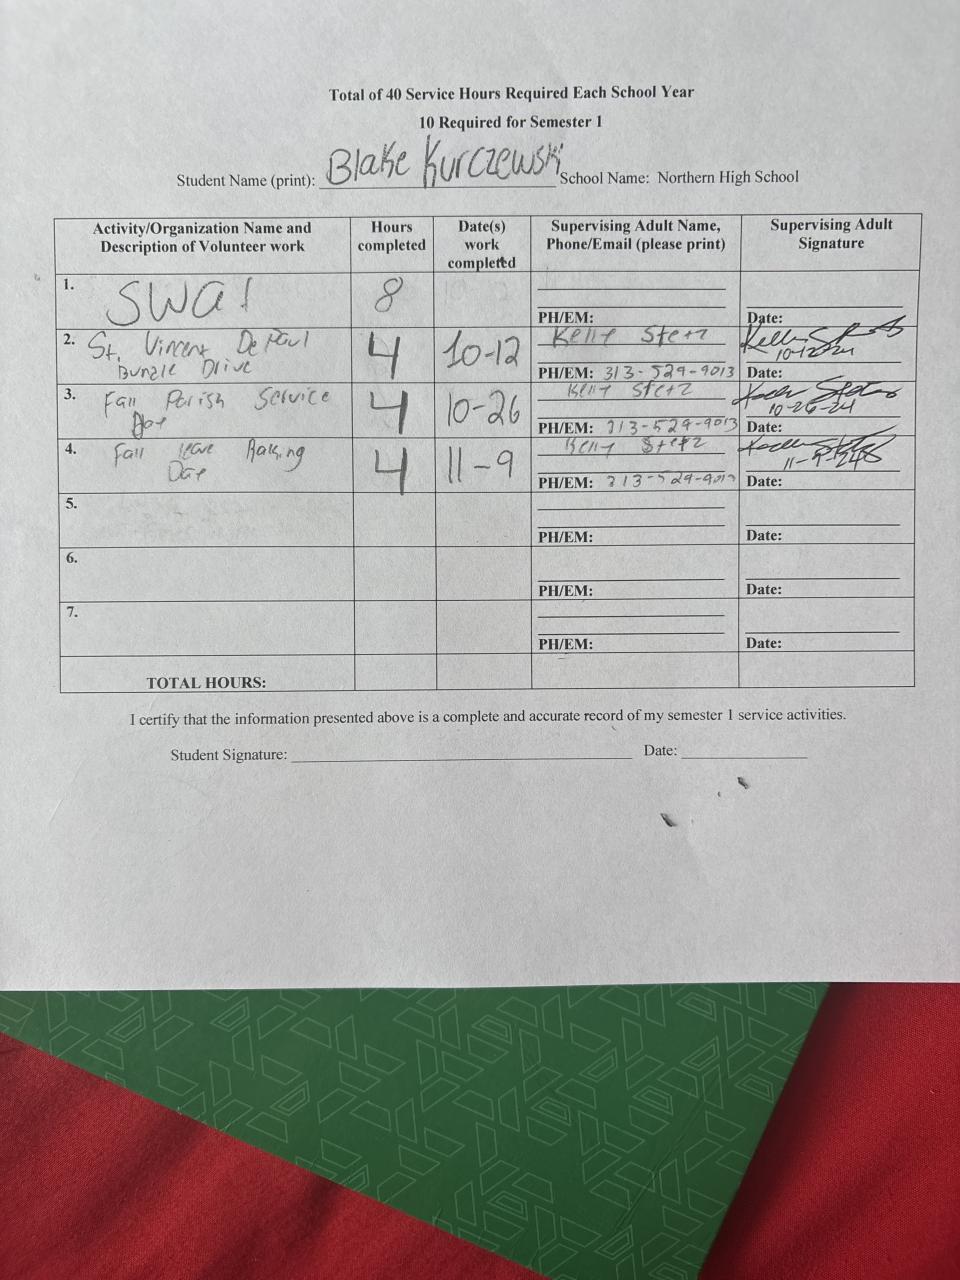 Total of 40 Service Hours Required Each School Year
10 Required for Semester 1
Student Name (print): Blake Kurczewski School Name: Northern High School
Activity/Organization Name and Description of Volunteer work
Hours completed
Date(s) work completed
Supervising Adult Name, Phone/Email (please print)
Supervising Adult Signature
1. SWAT 8
PH/EM:
Date:
2. St. Vincent De Paul
Bundle Drive
4 10-12
Kelly Stetz
PH/EM: 313-529-9013
10-12-24
Date:
3. Fall Parish Service
Day
4 10-26
Kelly Stetz
PH/EM: 313-529-9013
10-26-24
Date:
4. Fall leave Raking
Day
4 11-9
Kelly Stetz
PH/EM: 313-529-9013
11-9-24
Date:
5.
PH/EM:
Date:
6.
PH/EM:
Date:
7.
PH/EM:
Date:
TOTAL HOURS:
I certify that the information presented above is a complete and accurate record of my semester 1 service activities.
Student Signature: Date: